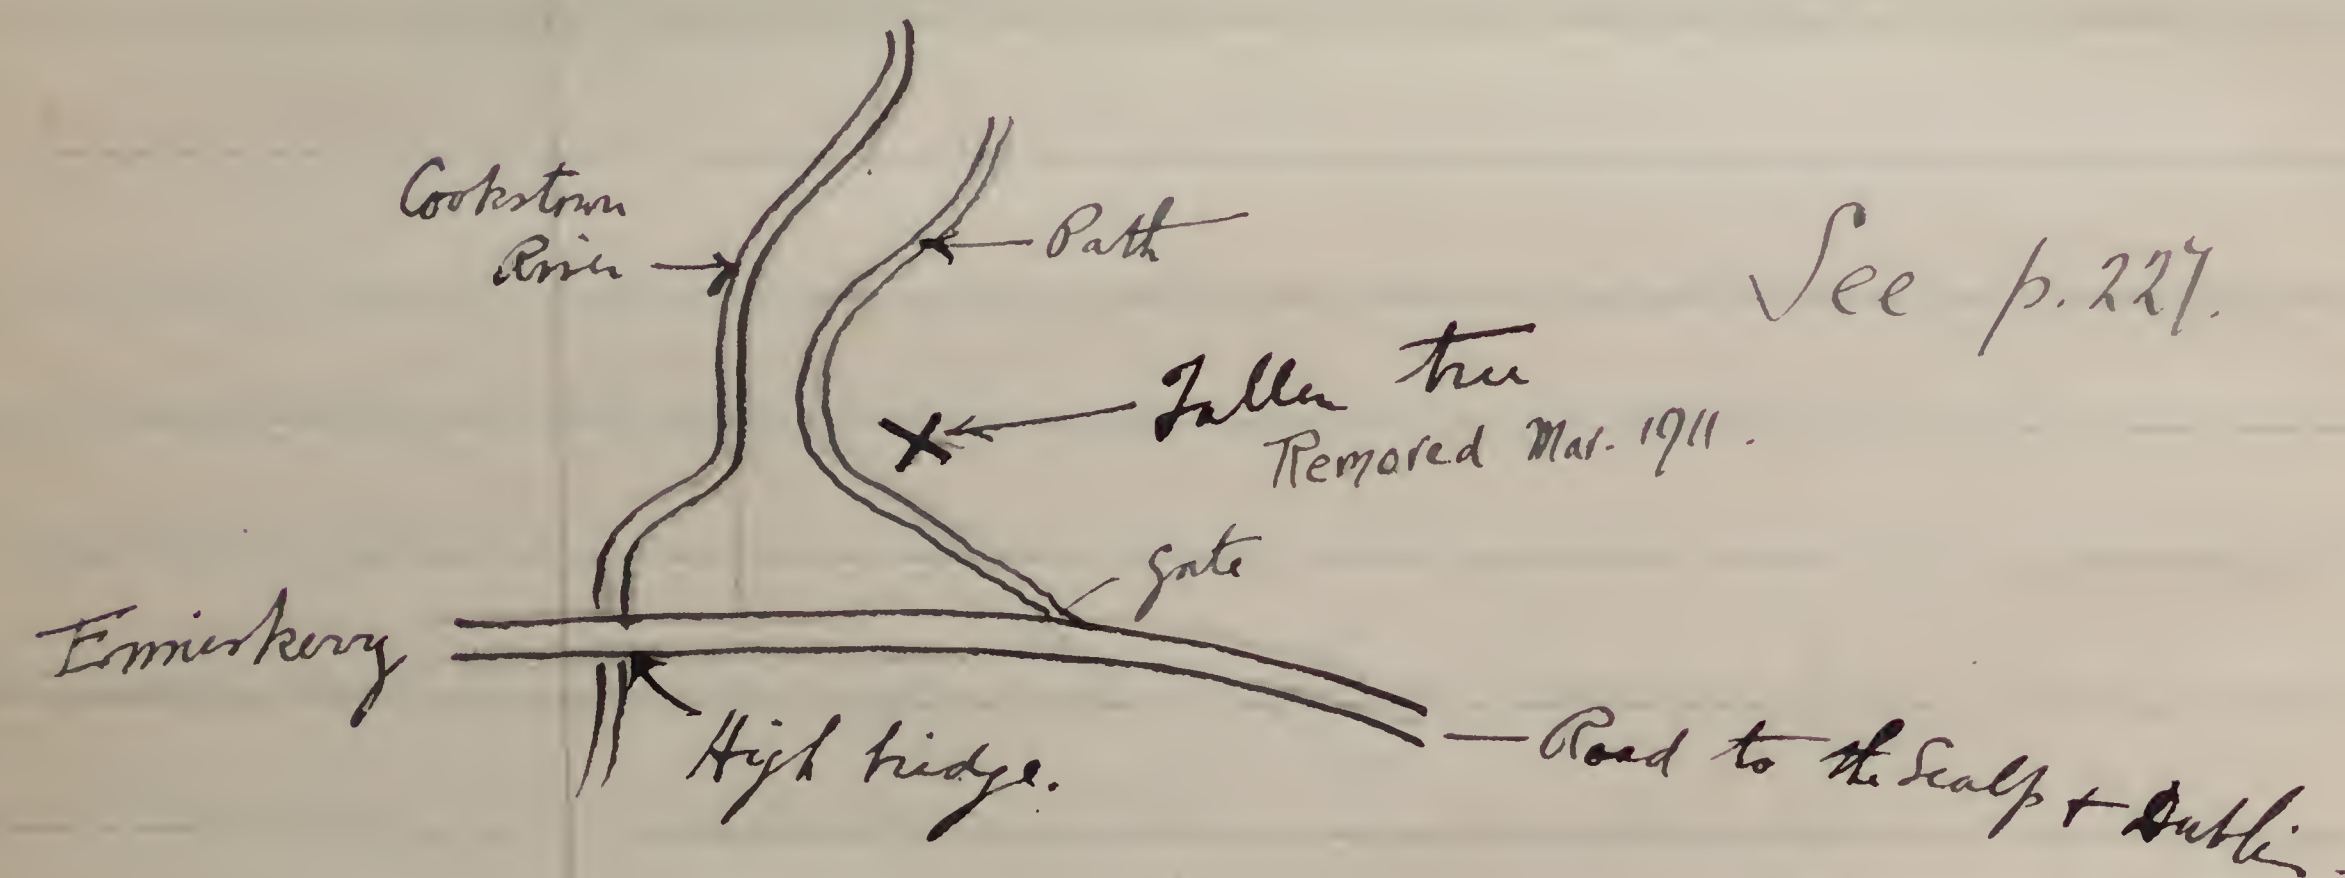 Cookstown
River
Path
See p. 227.
Fallen tree
Removed Mar. 1911.
Gate
Enniskerry
High bridge.
Road to the Scalp & Dublin